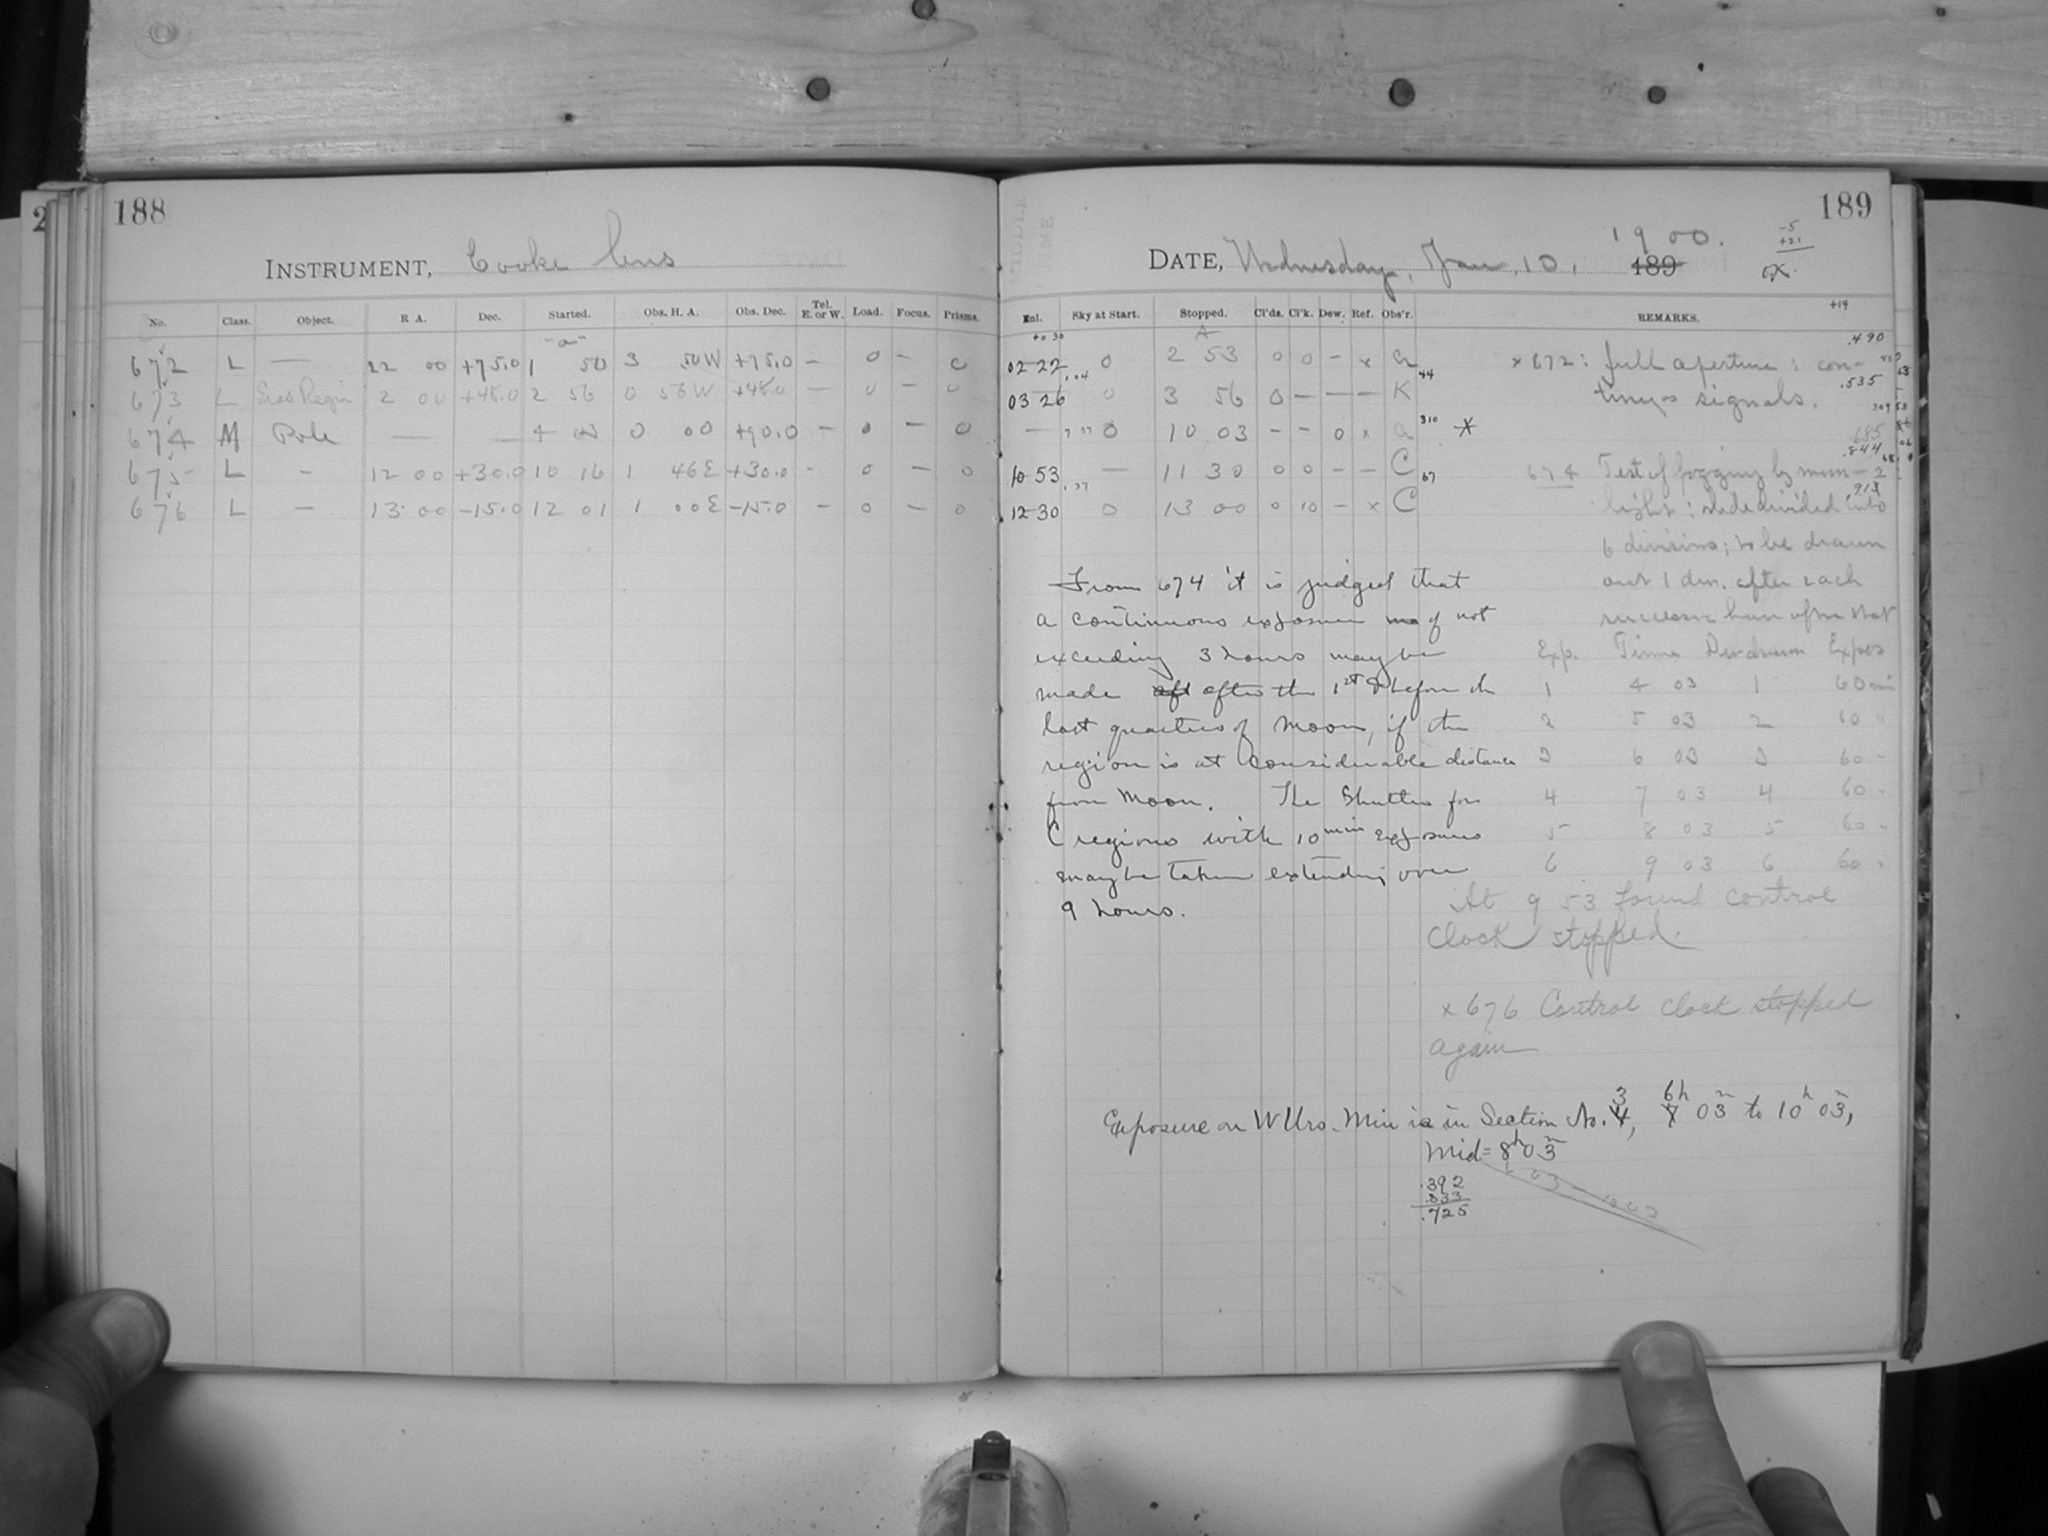 188
INSTRUMENT, Cooke lens
No. Class. Object. R A. Dec. Started. Obs. H. A. Obs. Dec. Tel. E. or W. Load. Focus. Prisms.
672 L — 22 00 +75.0 1 50 3 50W +75.0 — 0 — 0
673 L 2 00 +45.0 2 56 0 56W +45.0 — 0 — 0
674 M Pole — — 4 03 0 00 +90.0 — 0 — 0
675 L — 12 00 +30.0 10 16 1 46E +30.0 — 0 — 0
676 L — 13 00 -15.0 12 01 1 00E -15.0 — 0 — 0
189
DATE, Wednesday, Jan. 10, 1900.
189
-5
+21
Enl. Sky at Start. Stopped. Cl'ds. Cl'k. Dew. Ref. Obs'r. REMARKS.
+14
+0 30
02 22 0 2 53 0 0 — x a
03 26 0 3 56 0 — — — K
— 0 10 03 — — 0 x a
10 53 — 11 30 0 0 — — C
12 30 0 13 00 0 10 — x C
x 672: full aperture: con-
tinuous signals.
.490
.535
.685
.844
.913
674 Test of fogging by moon-
light: slide divided into
6 divisions; to be drawn
out 1 div. after each
successive hour after start
Exp. Time Div drawn Expos
1 4 03 1 60 min
2 5 03 2 60 "
3 6 03 3 60 "
4 7 03 4 60 "
5 8 03 5 60 "
6 9 03 6 60 "
At 9 53 found control
clock stopped.
x 676 Control clock stopped
again
From 674 it is judged that
a continuous exposure of not
exceeding 3 hours may be
made after the 1st & before the
last quarters of Moon, if the
region is at considerable distance
from Moon. The Shutter for
C regions with 10 min exposures
may be taken extending over
9 hours.
Exposure on W Urs. Min is in Section No. 3, 6h 03m to 10h 03m,
Mid = 8h 03m
6 03 - 10 03
.392
.333
.725